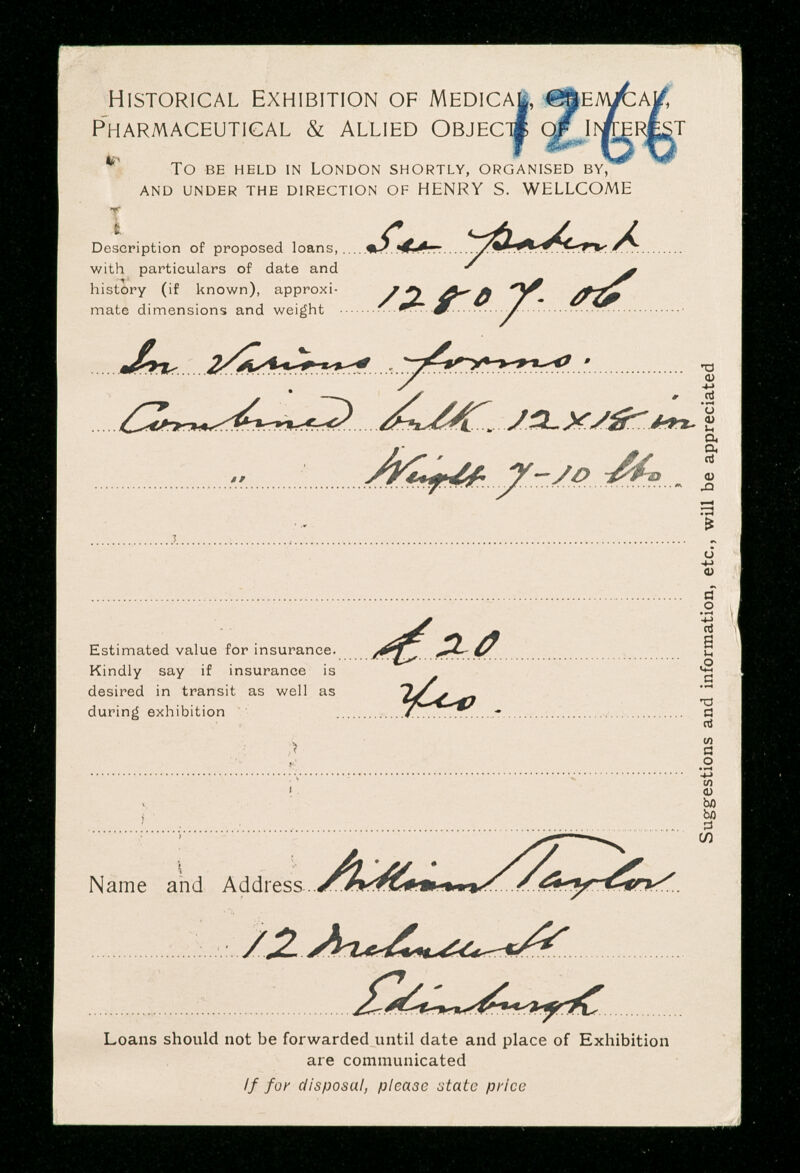 1266
HISTORICAL EXHIBITION OF MEDICAL, CHEMICAL,
PHARMACEUTICAL & ALLIED OBJECTS OF INTEREST
TO BE HELD IN LONDON SHORTLY, ORGANISED BY,
AND UNDER THE DIRECTION OF HENRY S. WELLCOME
Description of proposed loans, See patent
with particulars of date and
history (if known), approxi-
mate dimensions and weight 12807. 06
In Various forms.
Combined bulk. 12 x 18 in
" Weight 7-10 lbs.
Estimated value for insurance. £20
Kindly say if insurance is
desired in transit as well as
during exhibition Yes.
Name and Address William Taylor
12 Melville St
Edinburgh
Loans should not be forwarded until date and place of Exhibition
are communicated
If for disposal, please state price
Suggestions and information, etc., will be appreciated